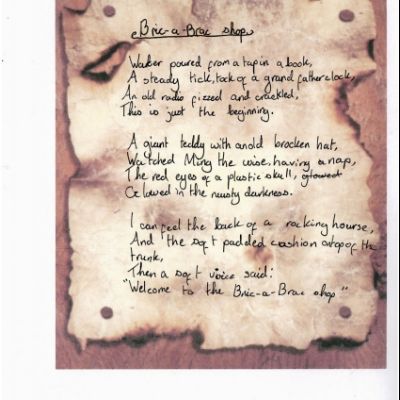 Bric-a-Brac shop
Water poured from a tap in a book,
A steady tick, tock of a grandfather clock,
An old radio fizzed and crackled,
This is just the beginning.
A giant teddy with an old brocken hat,
Watched Ming the wise, having a nap,
The red eyes of a plastic skull, glowed
in the musty darkness.
I can feel the back of a rocking hourse,
And the soft padded cushion ontop of the
trunk,
Then a soft voice said:
"Welcome to the Bric-a-Brac shop"